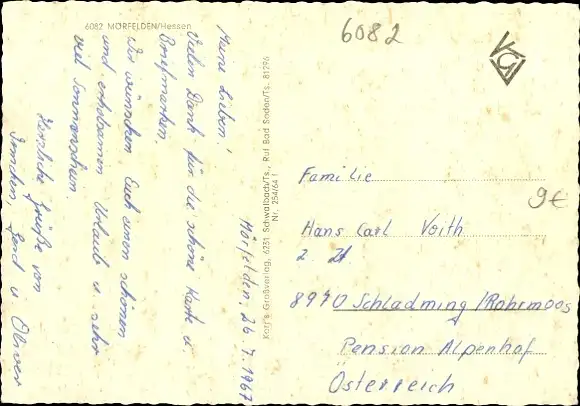 6082 MÖRFELDEN/Hessen
Mörfelden, 26. 7. 1967
Meine Lieben!
Vielen Dank für die schöne Karte u.
Briefmarken.
Wir wünschen Euch einen schönen
und erholsamen Urlaub u. sehr
viel Sonnenschein.
Herzliche Grüße von
Gerd u. Oliver
Korr's Großverlag, 6231 Schwalbach/Ts., Ruf Bad Soden/Ts. 81296
Nr. 254/64 f
6082
Familie
9€
Hans Carl Voith
z. Zt
8970 Schladming/Rohrmoos
Pension Alpenhof
Österreich